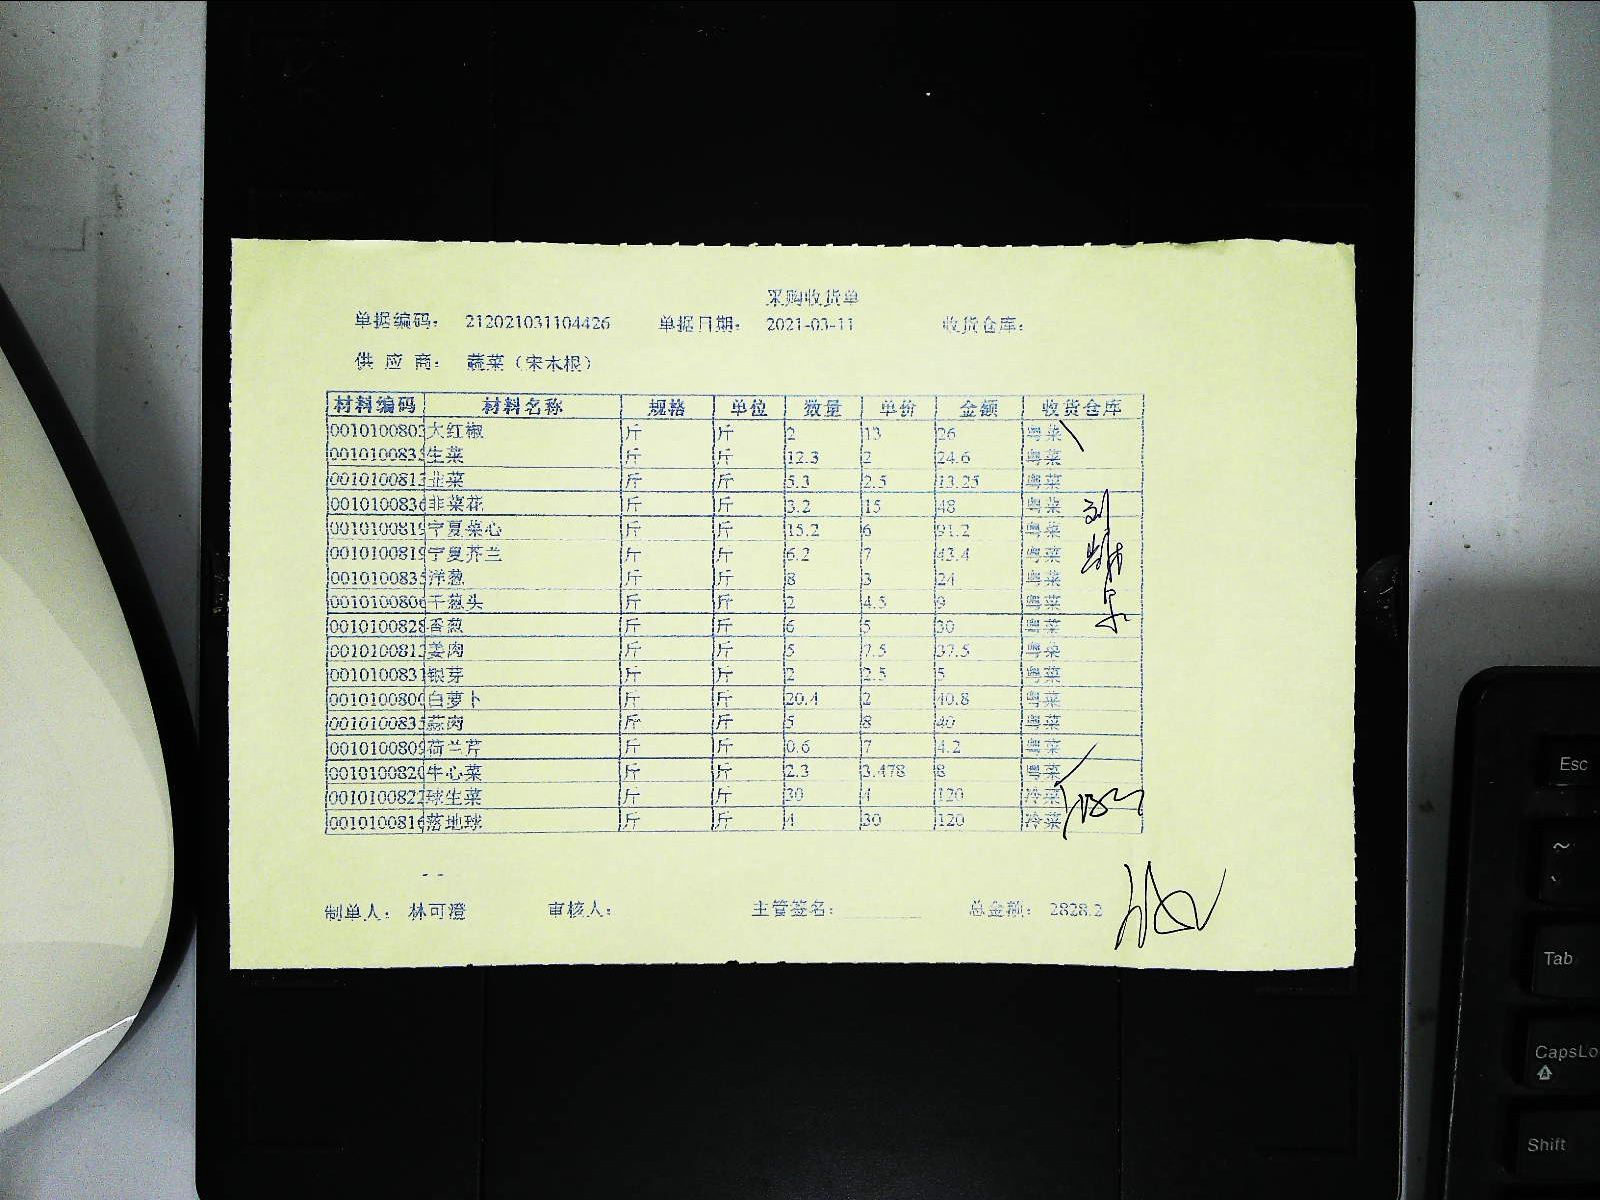 采购收货单
单据编码： 212021031104426 单据日期： 2021-03-11 收货仓库：
供 应 商： 蔬菜（宋木根）
材料编码 材料名称 规格 单位 数量 单价 金额 收货仓库
0010100803 大红椒 斤 斤 2 13 26 粤菜
001010083 生菜 斤 斤 12.3 2 24.6 粤菜
001010081 韭菜 斤 斤 5.3 2.5 13.25 粤菜
0010100836 韭菜花 斤 斤 3.2 15 48 粤菜
0010100819 宁夏菜心 斤 斤 15.2 6 91.2 粤菜
0010100819 宁夏芥兰 斤 斤 6.2 7 43.4 粤菜
0010100835 洋葱 斤 斤 8 3 24 粤菜
0010100806 干葱头 斤 斤 2 4.5 9 粤菜
0010100828 香葱 斤 斤 6 5 30 粤菜
001010081 姜肉 斤 斤 5 7.5 37.5 粤菜
0010100831 银芽 斤 斤 2 2.5 5 粤菜
0010100800 白萝卜 斤 斤 20.4 2 40.8 粤菜
001010083 蒜肉 斤 斤 5 8 40 粤菜
0010100809 荷兰芹 斤 斤 0.6 7 4.2 粤菜
0010100820 牛心菜 斤 斤 2.3 3.478 8 粤菜
0010100822 球生菜 斤 斤 30 4 120 冷菜
0010100816 落地球 斤 斤 4 30 120 冷菜
制单人： 林可澄 审核人： 主管签名： 总金额： 2828.2
Esc
~
Tab
CapsLo
Shift